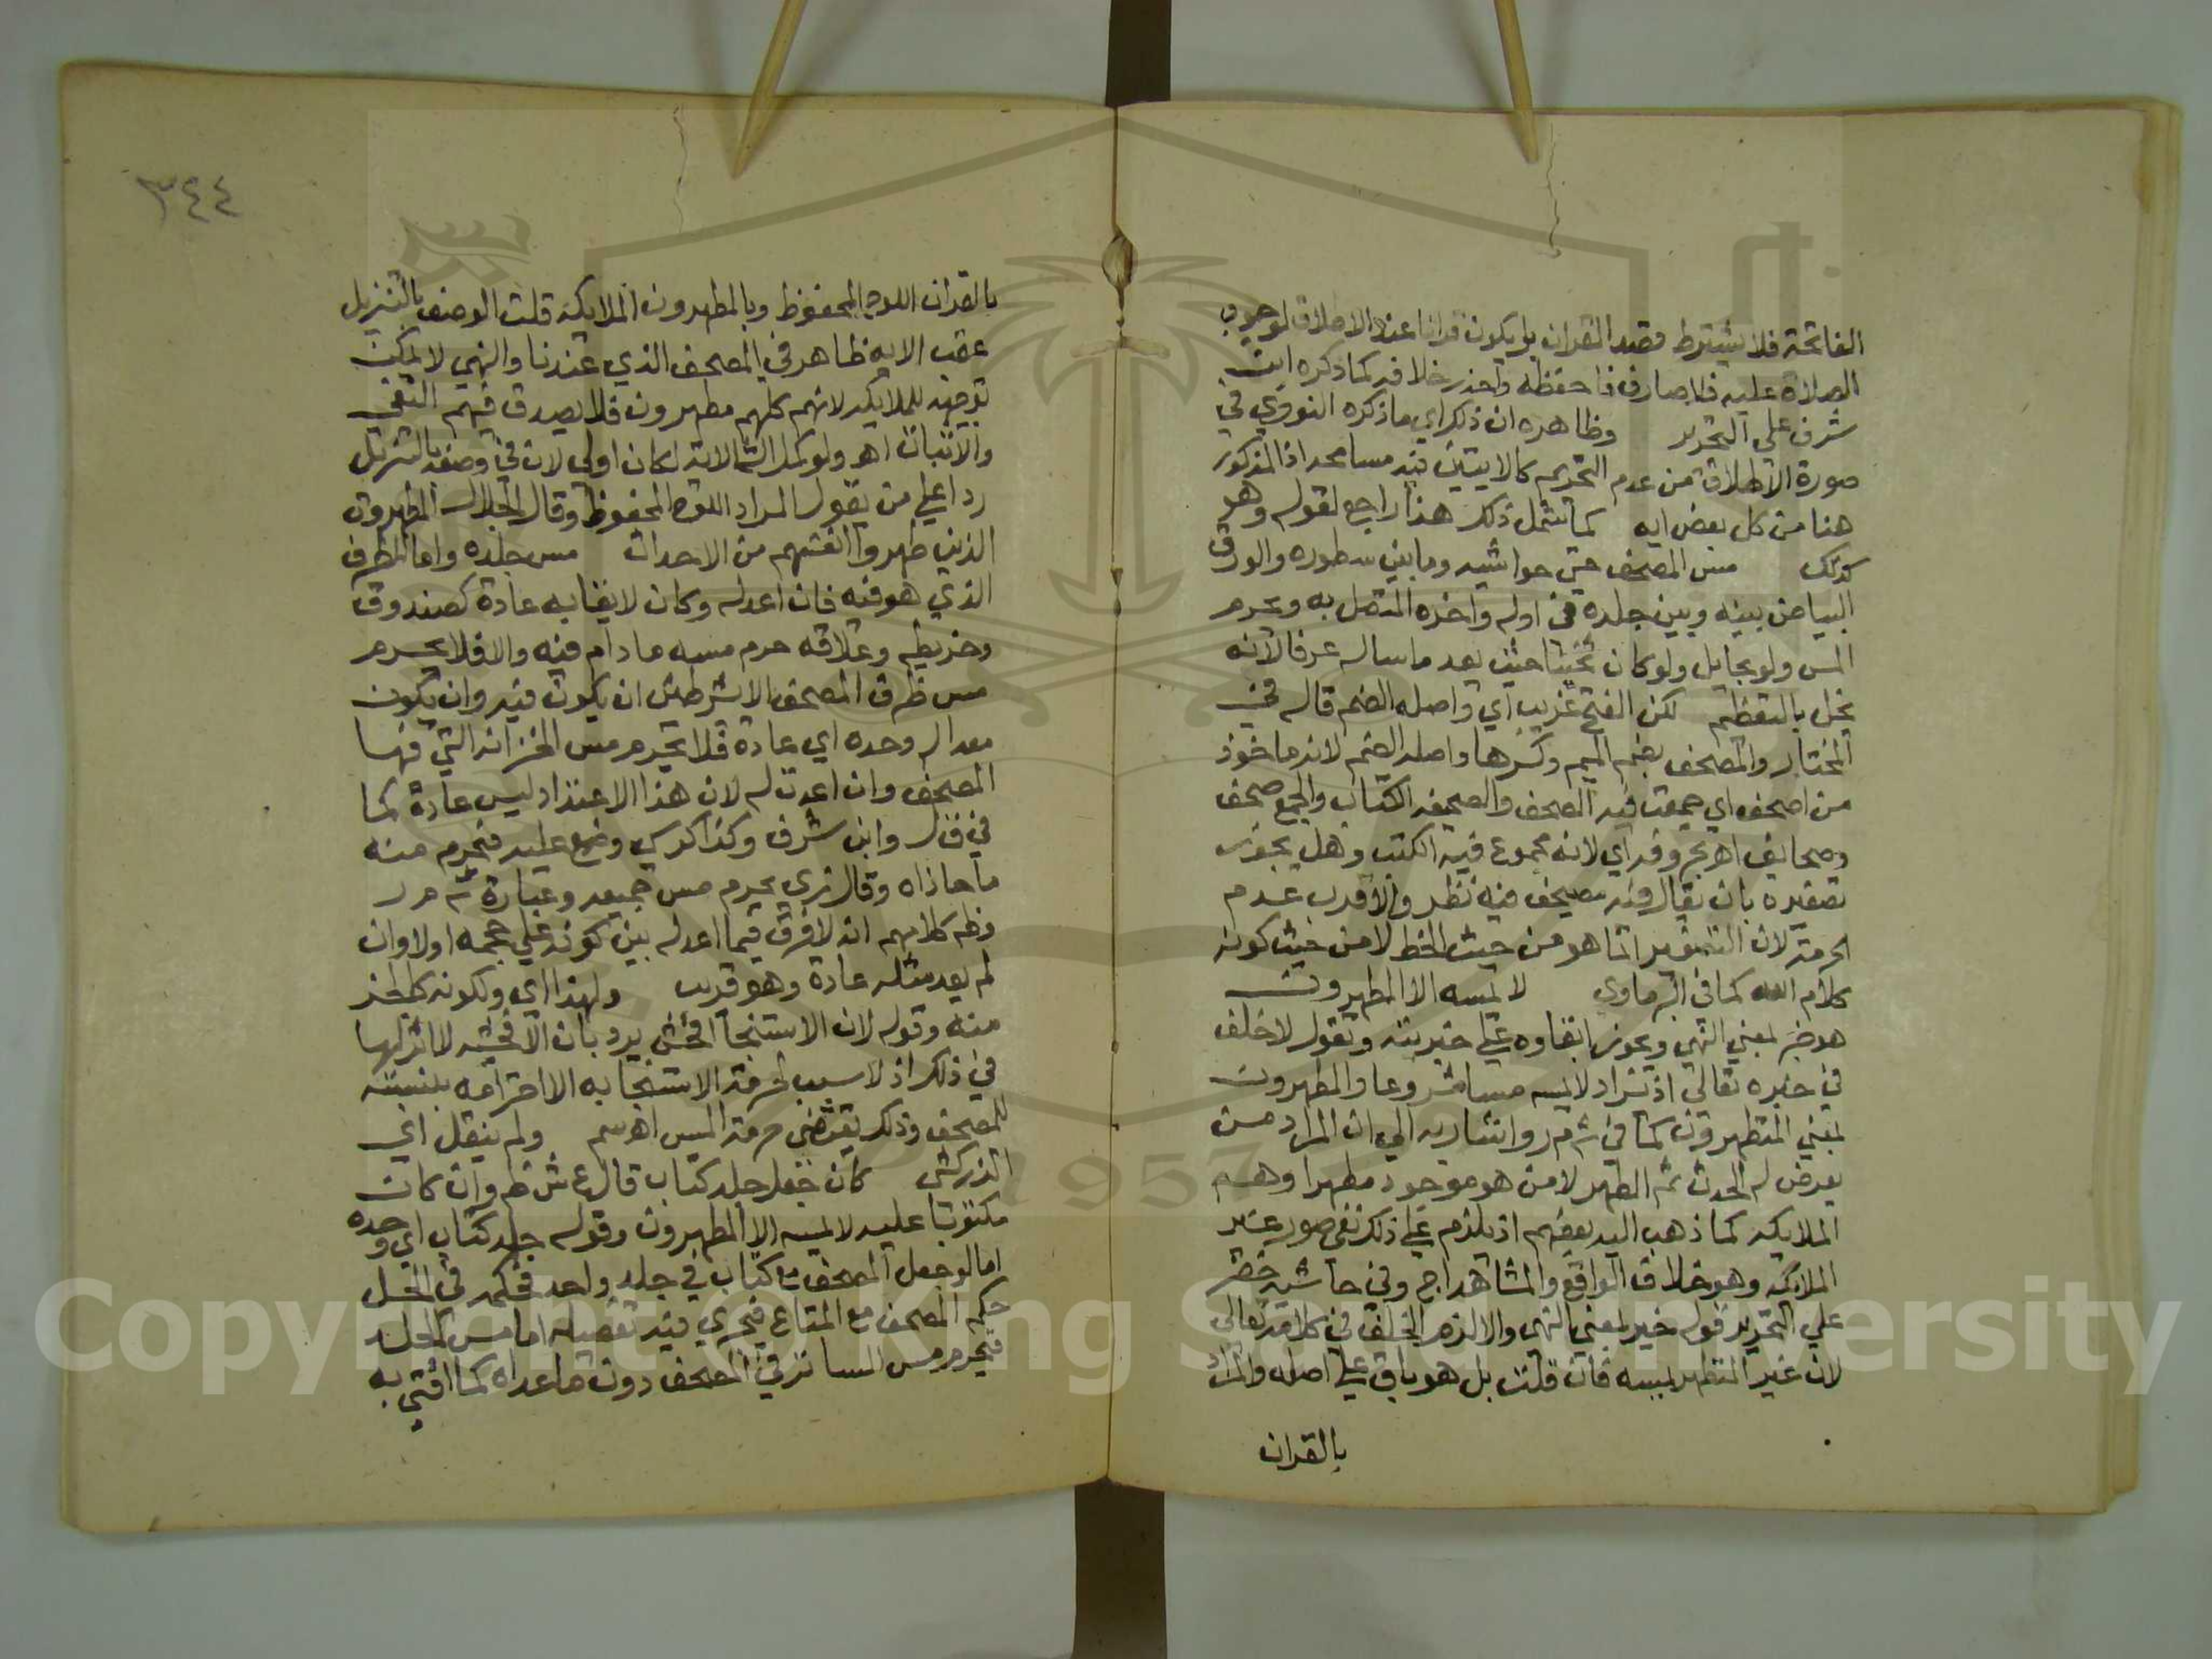 الفاتحة فلا يشترط قصد القران بل يكون قرانا عند الاطلاق لوجوب
الصلاة عليه فلا صارف فاحفظه واحذر خلافه كما ذكره ابن
شرف على التحرير وظاهره ان ذلك اي ما ذكره النووي في
صورة الاطلاق من عدم التحريم كالايتين فيه مسامحه اذ المذكور
هنا من كل بعض ايه كما شمل ذلك هذا راجع لقوله وهو
كذلك مس المصحف حتى حواشيه وما بين سطوره والورق
البياض بينه وبين جلده في اوله واخره المتصل به ويحرم
المس ولو بحايل ولو كان ثخينا حيث يعد ماسا له عرفا لانه
يخل بالتعظيم لكن الفتح غريب اي واصله الضم قال في
المختار والمصحف بضم الميم وكسرها واصله الضم لانه ماخوذ
من اصحف اي جمعت فيه الصحف والصحيفه الكتاب والجمع صحف
وصحايف اهـ بحروفه اي لانه مجموع فيه الكتب وهل يجوز
تصغيره بان يقال فيه مصيحف فيه نظر والاقرب عدم
الحرمة لان التصغير انما هو من حيث الخط لا من حيث كونه
كلام الله كما في البرماوي لا يمسه الا المطهرون
هو خبر بمعني النهي ويجوز ابقاوه علي خبريته ونقول لا خلف
في خبره تعالي اذ المراد لا يمسه مسا مشروعا والمطهرون
بمعني المتطهرون كما في ش م ر واشار به الي ان المراد من
يعرض له الحدث ثم الطهر لا من هو موجود مطهرا وهم
الملايكه كما ذهب اليه بعضهم اذ يلزم علي ذلك نفي صور غير
الملايكه وهو خلاف الواقع والمشاهد اج وفي حاشية خضر
علي التحرير قوله خبر بمعني النهي والا لزم الخلف في كلامه تعالي
لان غير المتطهر يمسه فان قلت بل هو باق علي اصله والمراد
بالقران
٣٤٤
بالقران اللوح المحفوظ وبالمطهرون الملايكة قلت الوصف بالتنزيل
عقب الايه ظاهر في المصحف الذي عندنا والنهي لا يمكن
توجيهه للملايكه لانهم كلهم مطهرون فلا يصدق فيهم النفي
والاثبات اهـ ولو كمل الثلاثة لكان اولي لان في وصفه بالتنزيل
ردا علي من يقول المراد اللوح المحفوظ وقال الجلال المطهرون
الذين طهروا انفسهم من الاحداث مس جلده واما الظرف
الذي هو فيه فان اعد له وكان لايقا به عادة كصندوق
وخريطه وعلاقه حرم مسه ما دام فيه والا فلا يحرم
مس ظرف المصحف الا بشرطين ان يكون فيه وان يكون
معدا له وحده اي عادة فلا يحرم مس الخزانه التي فيها
المصحف وان اعدت له لان هذا الاعتداد ليس عادة كما
في ق ل وابن شرف وكذا كرسي وضع عليه فيحرم منه
ما حاذاه وقال زي يحرم مس جميعه وعبارة ش م ر
وظ كلامهم انه لا فرق فيما اعد له بين كونه علي حجمه اولا وان
لم يعد مثله عادة وهو قريب ولهذا اي ولكونه كالجز
منه وقوله لان الاستنجا افحش يرد بان الافحشيه لا اثر لها
في ذلك اذ لا سبب لحرمة الاستنجا به الا احترامه بنسبته
للمصحف وذلك يقتضي حرمة المس اهـ سم ولم ينقل اي
الزركشي كان جعل جلد كتاب قال ع ش ظ وان كان
مكتوبا عليه لا يمسه الا المطهرون وقوله جلد كتاب اي وحده
اما لو جعل المصحف مع كتاب في جلد واحد فحكمه في الحمل
حكم المصحف مع المتاع فيجري فيه تفصيله اما مس الجلد
فيحرم مس الساتر في المصحف دون ما عداه كما افتي به
Copyright © King Saud University
1957